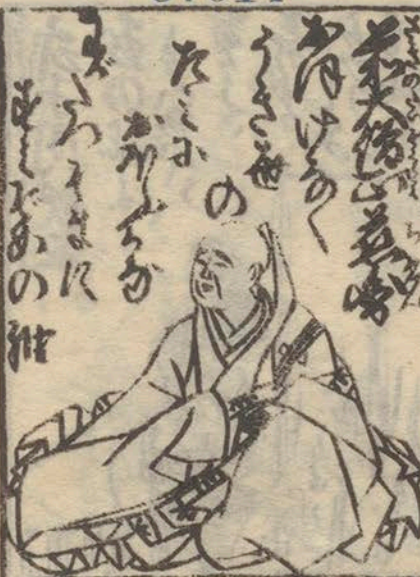 前大僧正慈
おほけなく
うき世
の
たみに
おほふかな
わがたつそまに
すみぞめの袖